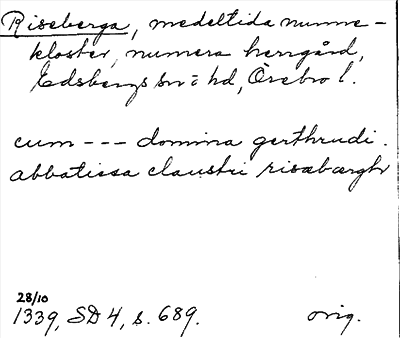 Riseberga, medeltida nunne-
kloster, numera herrgård,
Edsbergs sn o hd, Örebro l.
cum --- domina gerthrudi.
abbatissa claustri risæbærghr
28/10
1339, SD 4, s. 689. orig.